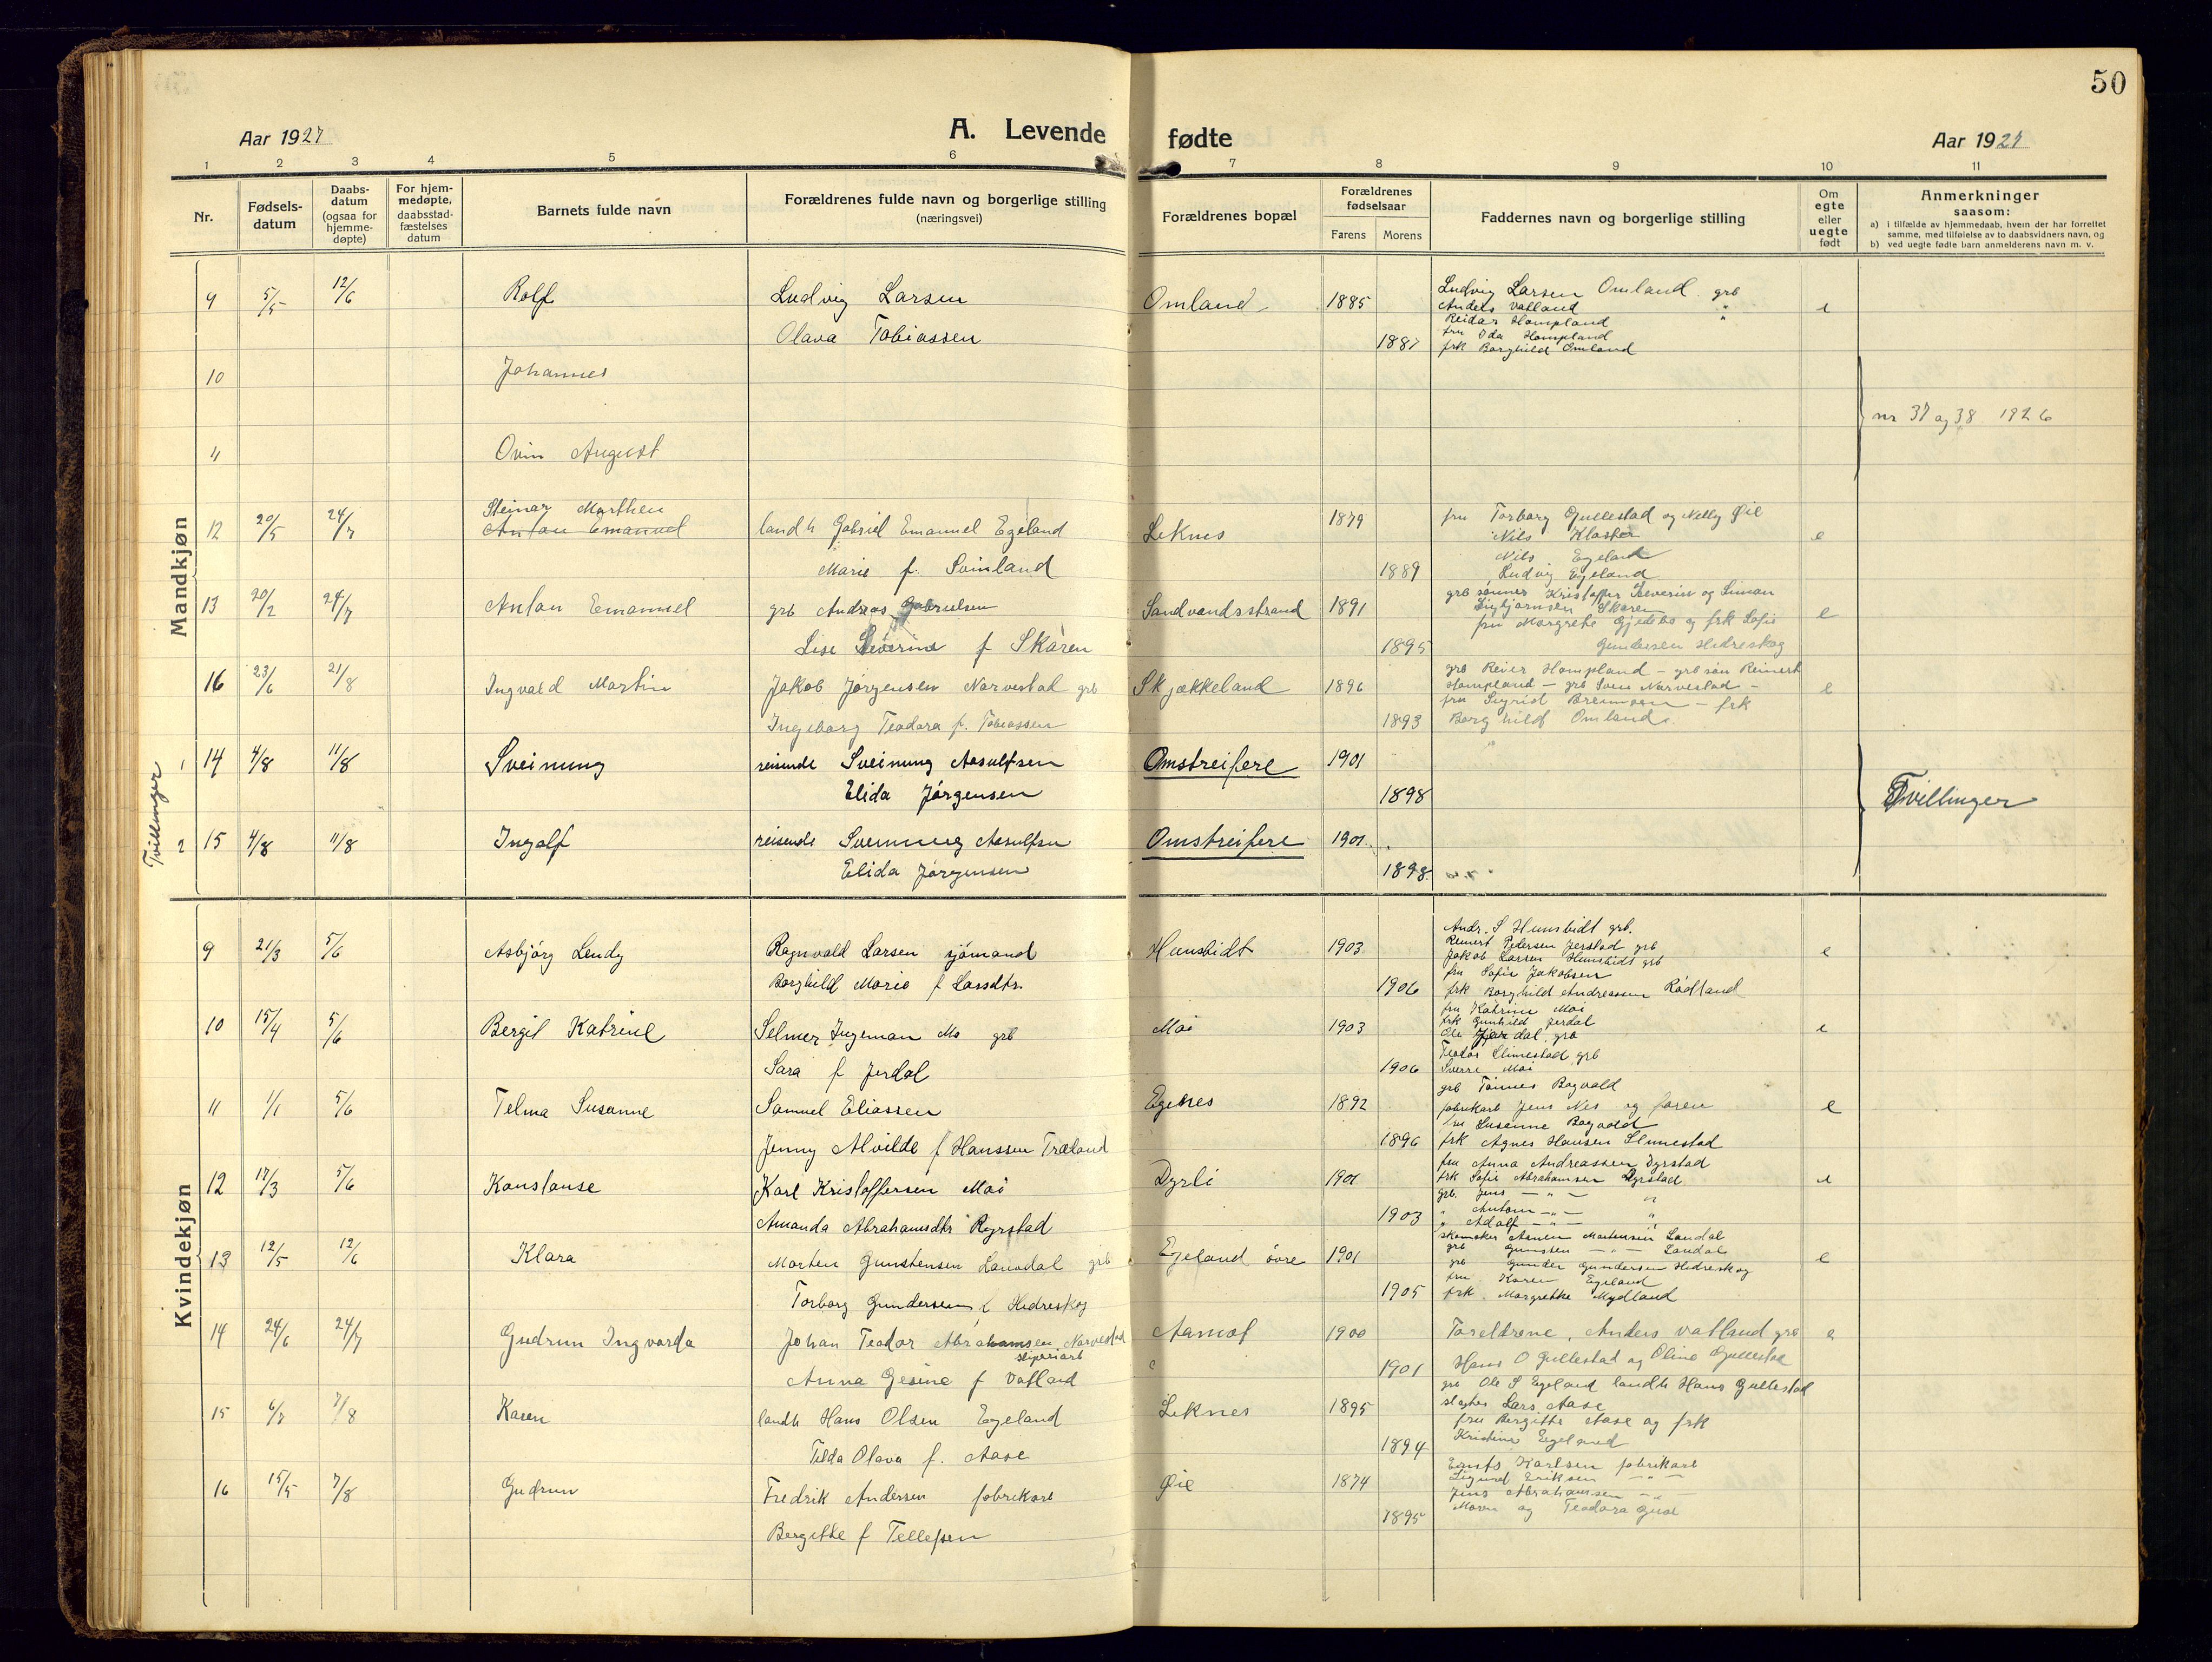 50
Aar 1927
A. Levende
fødte
Aar 1927
1 2 3 4 5 6 7 8 9 10 11
Nr.
Fødsels-
datum
Daabs-
datum
(ogsaa for
hjemme-
døpte)
For hjem-
medøpte,
daabsstad-
fæstelses
datum
Barnets fulde navn
Forældrenes fulde navn og borgerlige stilling
(næringsvei)
Forældrenes bopæl
Forældrenes
fødselsaar
Farens
Morens
Faddernes navn og borgerlige stilling
Om
egte
eller
uegte
født
Anmerkninger
saasom:
a) i tilfælde av hjemmedaab, hvem der har forrettet
samme, med tilføielse av to daabsvidners navn, og
b) ved uegte fødte barn anmelderens navn m. v.
Mandkjøn
9 5/5 12/6 Rolf Ludvig Larsen Omland 1885 e
Olava Tobiassen 1887
Ludvig Larsen Omland grb
Anders Vatland "
Reidar Hompland "
fru Ida Hompland
frk Borghild Omland
10 Johannes
nr 37 og 38 1926
11 Ovin August
Steinar Marthen
12 20/5 24/7 Anton Emanuel landh Gabriel Emanuel Egeland Leknes 1879 e
Marie f. Svinland 1889
fru Torborg Gullestad og Nelly Øie
Nils Kloster
Nils Egeland
Ludvig Egeland
13 20/2 24/7 Anton Emanuel grb Andreas Gabrielsen Sandvandsstrand 1891 e
Lise Severine f Skåren 1895
grb sønner Kristoffer Severin og Simon
Skåren
fru Margrethe Gjedebo og frk Sofie
Gundersen Hedreskog
16 23/6 21/8 Ingvald Martin Jakob Jørgensen Narvestad grb Skjækkeland 1896 e
Ingeborg Teodora f. Tobiassen 1893
grb Reier Hompland - grb søn Reinert
Hompland - grb Sven Narvestad -
fru Sigrid - frk
Borghild Omland.
Tvillinger
1 14 4/8 11/8 Sveinung reisende Sveinung Aasulfsen Omstreifere 1901
Elida Jørgensen 1898
Tvillinger
2 15 4/8 11/8 Ingolf reisende Sveinung Aasulfsen Omstreifere 1901
Elida Jørgensen 1898
Kvindekjøn
9 21/3 5/6 Asbjørg Lendy Ragnvald Larsen sjømand Hunsbidt 1903 e
Borghild Marie f Larsdtr. 1906
Andr. S Hunsbidt grb.
Reinert Pedersen Jerstad grb
Jakob Larsen Hunsbidt grb
fru Sofie Jakobsen
frk Borghild Andreassen Rødland
10 15/4 5/6 Bergit Katrine Selmer Ingeman Mo grb Moi 1903 e
Sara f Jerdal 1906
fru Katrine Moi
frk Gunhild Jerdal
Ole Jerdal grb
Teodor Slimestad grb
Sverre Moi
11 1/1 5/6 Telma Susanne Samuel Eliassen Egenes 1892 e
Jenny Alvilde f Hanssen Træland 1896
grb Tønnes Bogvald
fabrikarb Jens Nes og faren
fru Susanne Bogvald
frk Agnes Hansen Slimestad
12 17/3 5/6 Konstanse Karl Kristoffersen Moi Dyrli 1901 e
Amanda Abrahamsdtr Dyrstad 1903
fru Anna Andreassen Dyrstad
frk Sofie Abrahamsen Dyrstad
grb. Jens — " — "
" Antom — " — "
" Adolf — " — "
13 12/5 12/6 Klara Morten Gunstensen Landal grb Egeland øvre 1901 e
Torborg Gundersen f Hedreskog 1905
skomaker Asmen Mortensen Landal
grb Gunsten — " — Landal
grb Gunder Gundersen Hedreskog
fru Karen Egeland
frk Margrethe Mydland
14 24/6 24/7 Gudrun Ingvarda Johan Teodor Abrahamsen Narvestad Aamot 1900 e
sliperiarb
Anna Gesine f Vatland 1901
Foreldrene, Anders Vatland grb
Hans O Gullestad og Oline Gullestad
15 6/7 7/8 Karen landh Hans Olsen Egeland Leknes 1895
Tilda Olava f. Aase 1894
grb Ole S Egeland landh Hans Gullestad
slagter Lars Aase
fru Bergitte Aase og frk
Kristine Egeland
16 15/5 7/8 Gudrun Fredrik Andersen fabrikarb Øie 1874
Bergitte f Tellefsen 1895
Karlsen fabrikarb
Sigurd Eriksen — " —
Jens Abrahamsen — " —
Moren og Teodora